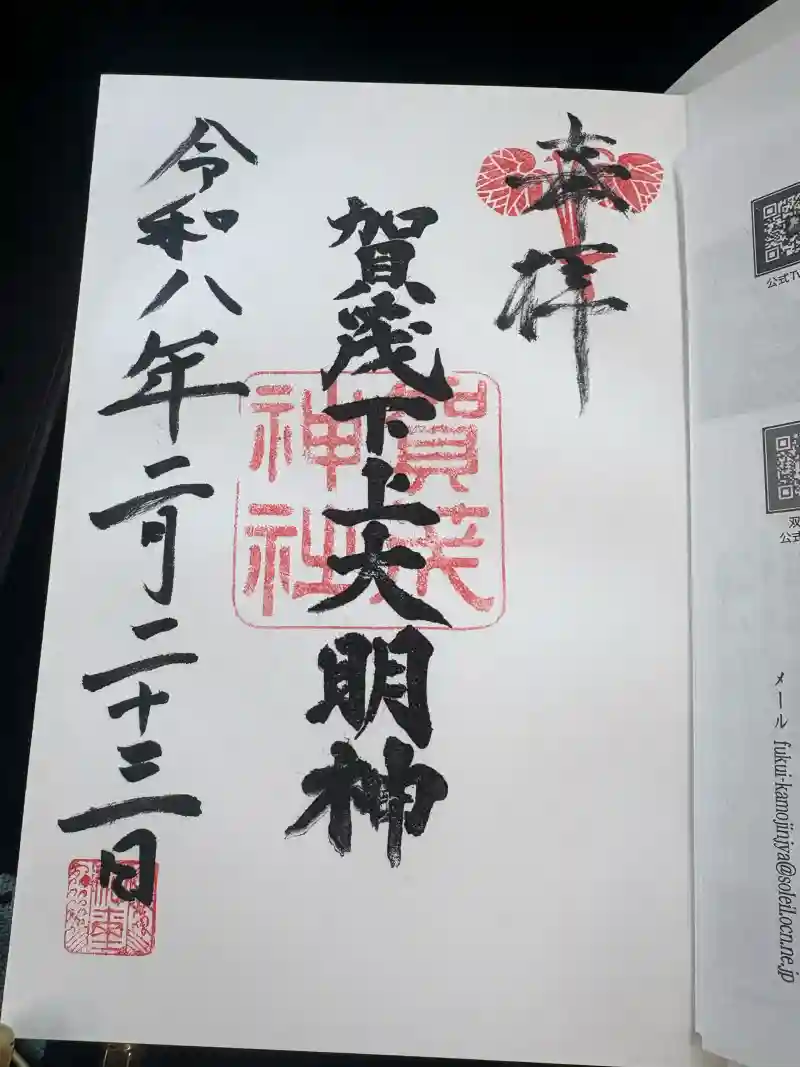 奉拝
賀茂下上大明神
賀茂
神社
令和八年二月二十三日
公式
双
公式
メール fukui-kamojinjya@soleil.ocn.ne.jp